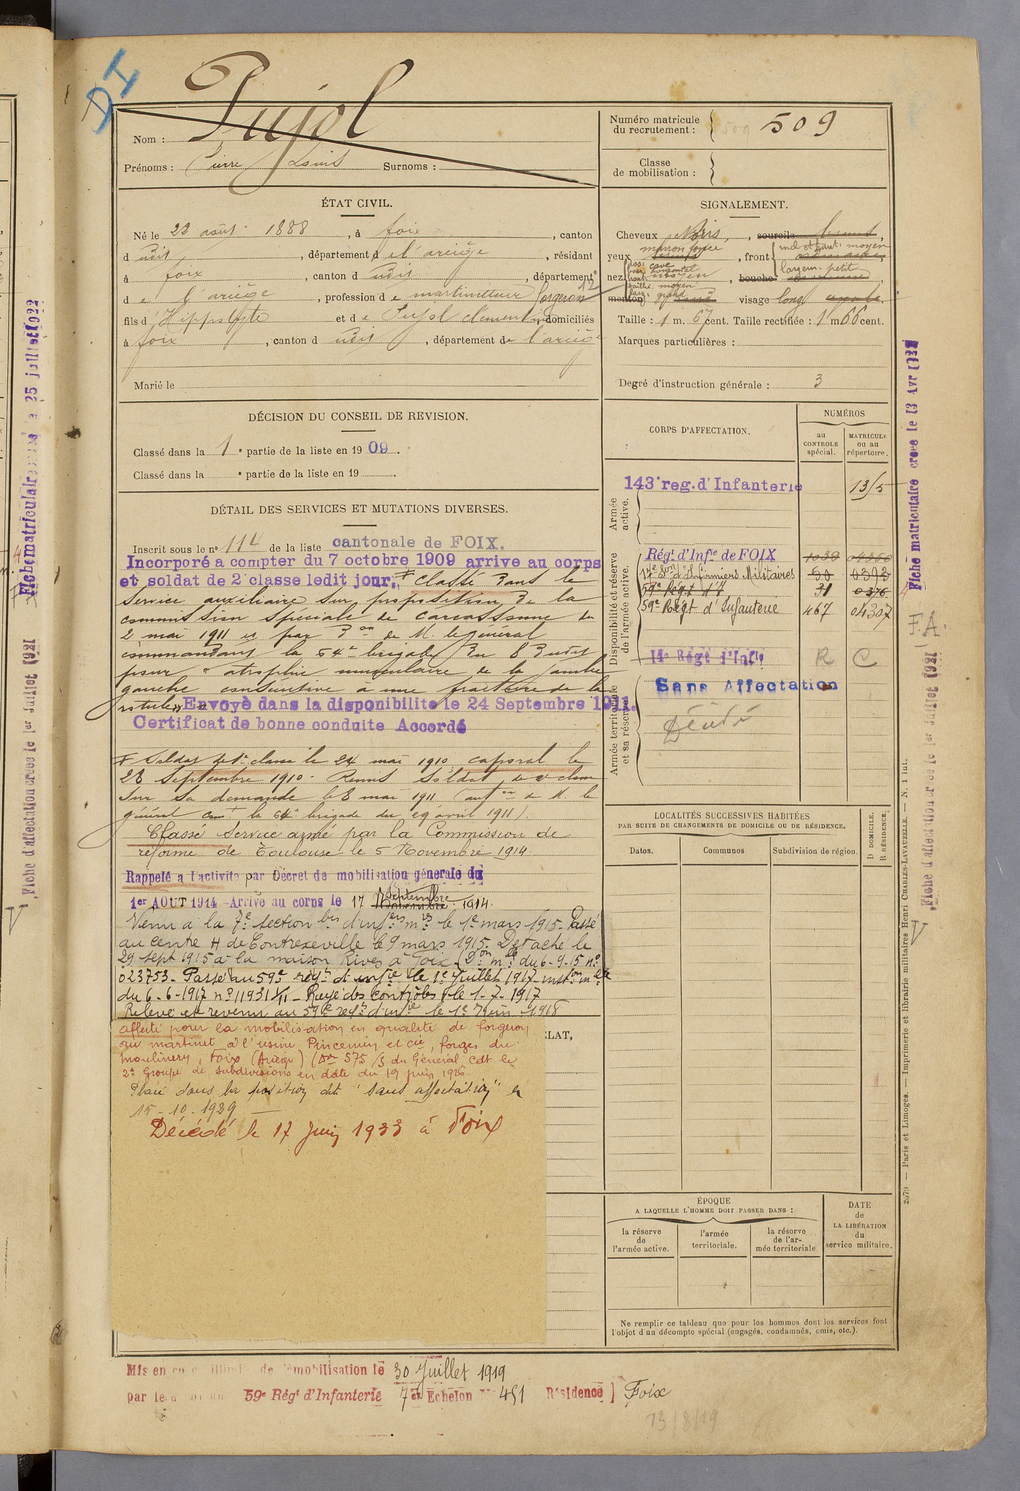 DI
Nom : Pujol
Prénoms : Pierre Louis Surnoms :
Numéro matricule du recrutement : 509
Classe de mobilisation :
ÉTAT CIVIL.
Né le 22 août 1888, à foix, canton
d udit, département de l'ariège, résidant
à foix, canton d udit, département
de l'ariège, profession de martinetteur forgeron
fils d'Hippolyte et de Pujol domiciliés
à foix, canton d udit, département de l'ariège
Marié le
SIGNALEMENT.
Cheveux Noirs, sourcils bruns,
yeux marron foncé, front incl et haut. moyen
nez moyen, bouche
menton visage long
Taille : 1 m. 67 cent. Taille rectifiée : 1 m 66 cent.
Marques particulières :
Degré d'instruction générale : 3
DÉCISION DU CONSEIL DE REVISION.
Classé dans la 1e partie de la liste en 1909.
Classé dans la e partie de la liste en 19
DÉTAIL DES SERVICES ET MUTATIONS DIVERSES.
Inscrit sous le n° 114 de la liste cantonale de FOIX.
Incorporé a compter du 7 octobre 1909 arrive au corps
et soldat de 2e classe ledit jour. Classé dans le
service auxiliaire sur proposition de la
commission spéciale de Carcassonne du
2 mai 1911 et par don de M. le général
commandant la 64e brigade du 8 dudit
pour "atrophie musculaire de la jambe
gauche consécutive a une fracture de la
rotule". Envoyé dans la disponibilite le 24 Septembre 1911.
Certificat de bonne conduite Accordé
Soldat de 1e classe le 24 mai 1910, caporal le
28 Septembre 1910. Remis Soldat de 2e classe
sur sa demande le 8 mai 1911 (auton de M. le
général comt la 64e brigade du 29 avril 1911).
Classé Service armé par la Commission de
réforme de Toulouse le 5 Novembre 1914.
Rappelé a l'activité par Décret de mobilisation générale du
1er AOUT 1914 - Arrivé au corps le 17 Septembre 1914.
Venu à la 7e section d'infers mres le 1e mars 1915. Passé
au centre H de Contrexeville le 9 mars 1915. Détaché le
29 sept 1915 à la maison Rives à Foix (Don mlle du 6-9-15 no
023753. Passé au 59e regt d'infie le 1e Juillet 1917 - inston mlle
du 6-6-1917 no 11931 1/11 - Rayé des contrôles le 1-7-1917
Relevé et revenu au 59e regt d'infie le 1918
affecté pour la mobilisation en qualité de forgeron
au martinet à l'usine Pincemin et cie, forges du
moulinery, Foix (Ariège) (Don 575/3 du Général Cdt le
2e Groupe de Subdivisions en date du 19 juin 1926.
Placé dans la position dit "sans affectation" le
15-10-1929
Décédé le 17 Juin 1933 à Foix
CORPS D'AFFECTATION.
NUMÉROS
au CONTROLE spécial.
MATRICULE ou au répertoire.
Armée active.
143e reg. d'Infanterie 1315
Disponibilité et réserve de l'armée active.
Régt d'Infie de FOIX 1039
17e Son d'Infirmiers Militaires 50 0393
59e Régt d'I 31 0376
59e Régt d'Infanterie 467 04307
14e Régt d'Infie R C
Armée territoriale et sa réserve.
Sans Affectation
Décédé
LOCALITÉS SUCCESSIVES HABITÉES
PAR SUITE DE CHANGEMENTS DE DOMICILE OU DE RÉSIDENCE.
Dates.
Communes
Subdivision de région.
D DOMICILE.
R RÉSIDENCE.
ÉLAT,
ÉPOQUE
A LAQUELLE L'HOMME DOIT PASSER DANS :
la réserve de l'armée active.
l'armée territoriale.
la réserve de l'armée territoriale
DATE de LA LIBÉRATION du service militaire.
Ne remplir ce tableau que pour les hommes dont les services font
l'objet d'un décompte spécial (engagés, condamnés, omis, etc.).
Mis en démobilisation le 30 Juillet 1919
par le 59e Régt d'Infanterie 7e Echelon No 451 Résidence Foix
13/8/19
Fiche matriculaire creée le 25 juillet 1922
Fiche d'affectation creée le 1er Juillet 1921
Fiche matriculaire creée le 13 Avr 1922
F.A.
Fiche d'affectation creée le 1er Juillet 1921
2579 — Paris et Limoges. — Imprimerie et librairie militaires Henri CHARLES-LAVAUZELLE. — N. 1 int.